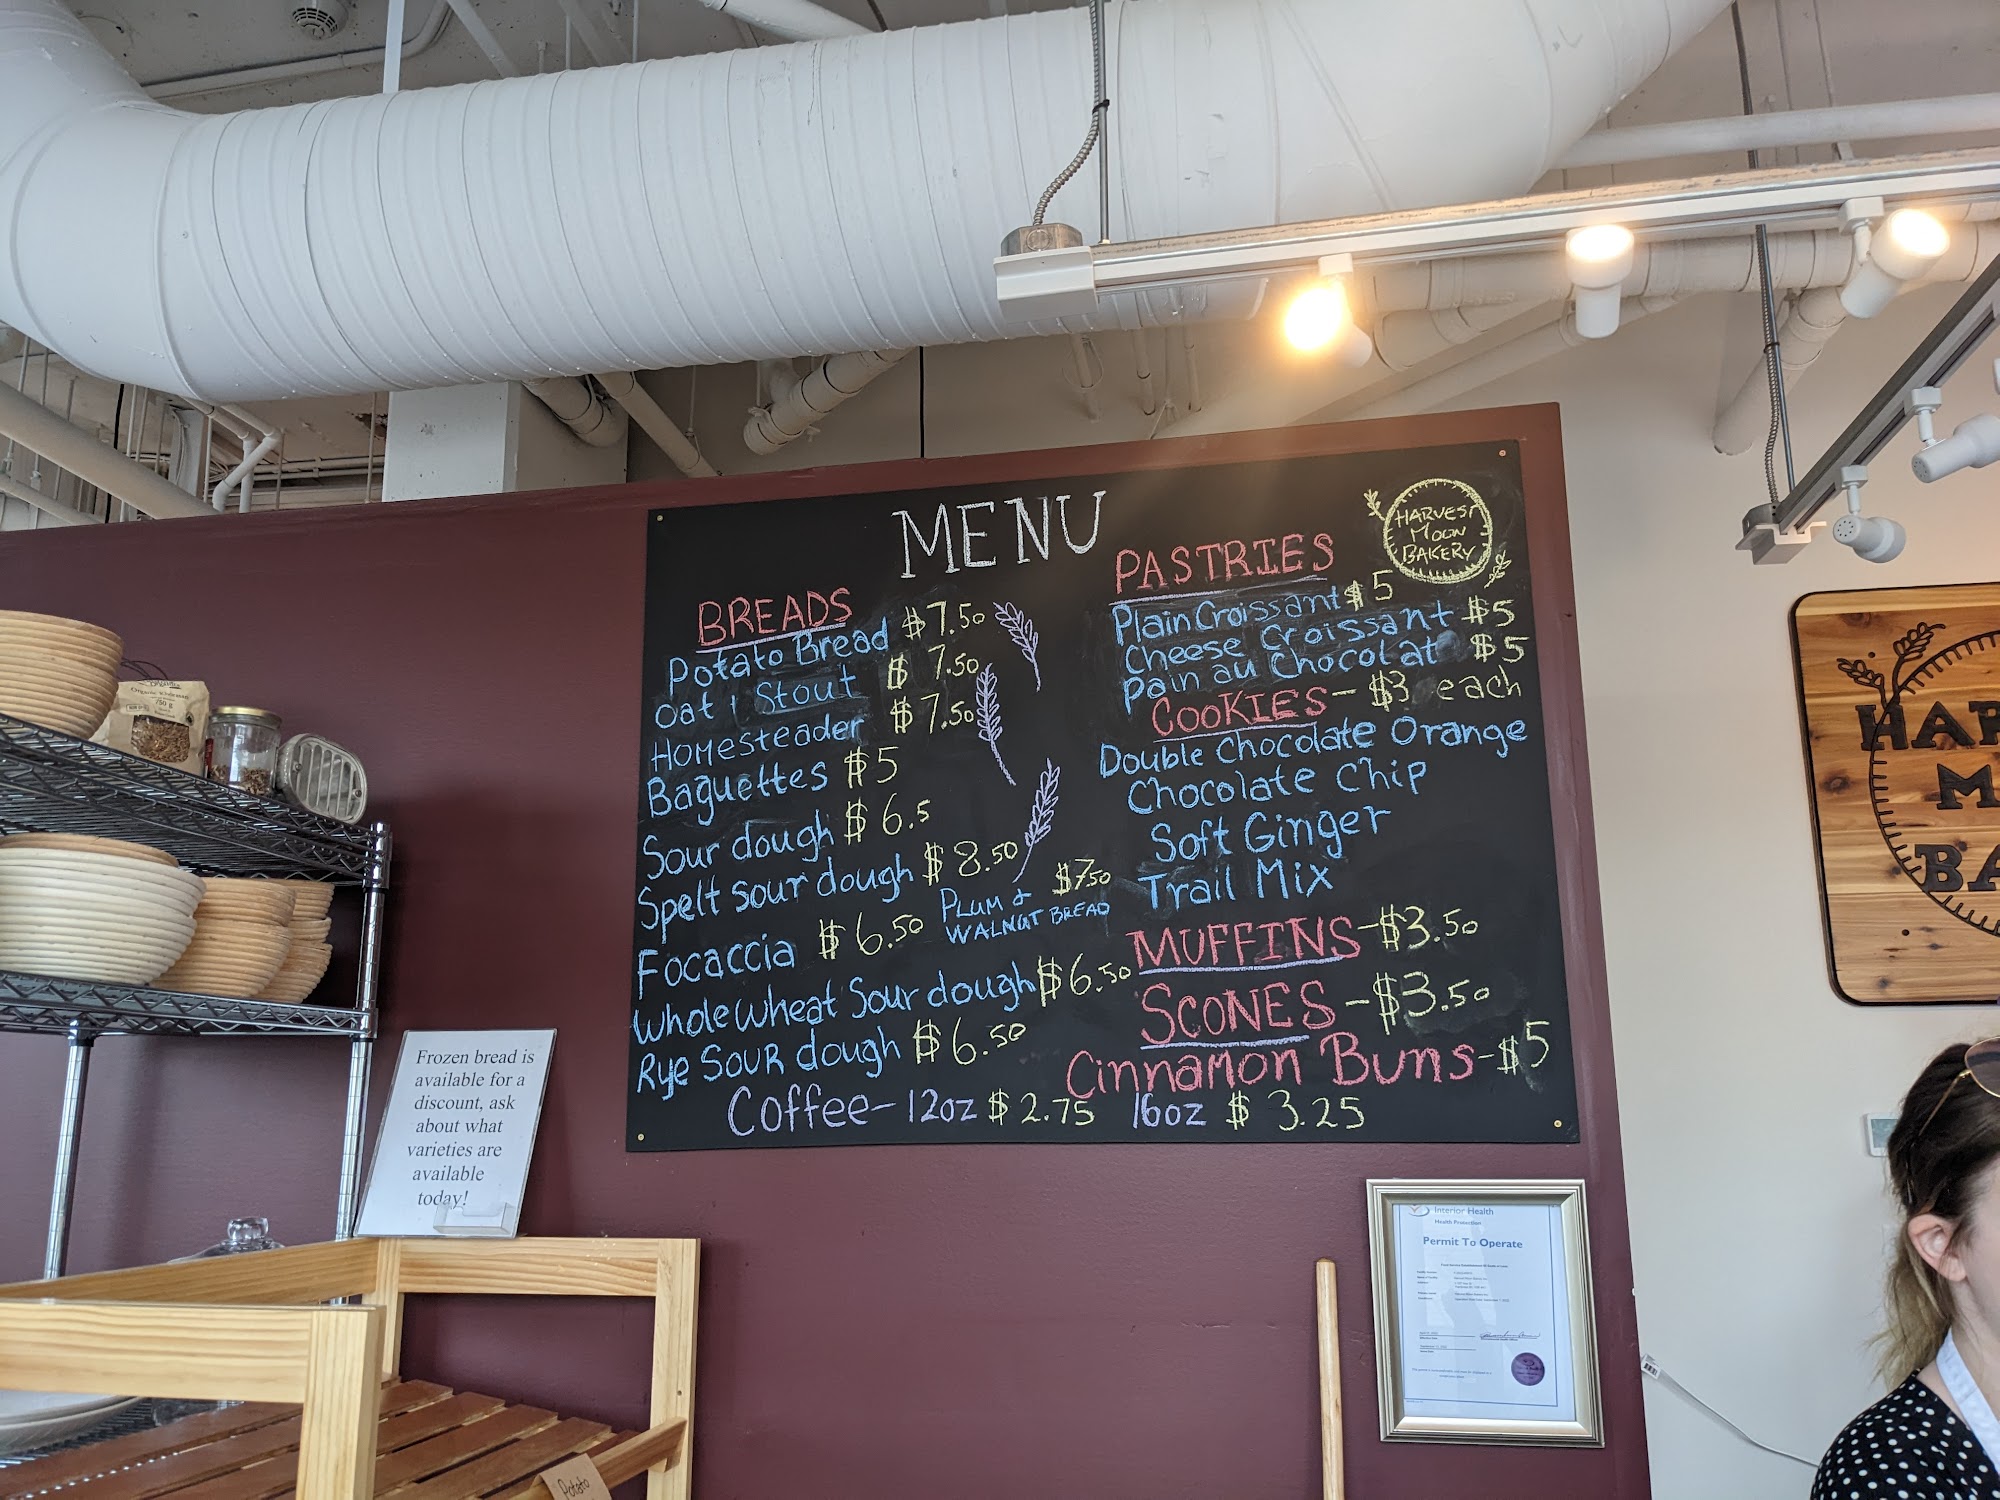 MENU
HARVEST
MOON
BAKERY
BREADS
Potato Bread $7.50
Oat | Stout $ 7.50
Homesteader $7.50
Baguettes $5
Sour dough $6.5
Spelt sour dough $8.50
PLUM & $7.50
WALNUT BREAD
Focaccia $6.50
Whole wheat Sour dough $6.50
Rye Sour dough $6.50
PASTRIES
Plain Croissant $5
Cheese Croissant $5
Pain au Chocolat $5
COOKIES - $3 each
Double Chocolate Orange
Chocolate Chip
Soft Ginger
Trail Mix
MUFFINS - $3.50
SCONES - $3.50
Cinnamon Buns - $5
Coffee - 12oz $2.75 16oz $ 3.25
HAR
M
BA
750 g
Frozen bread is
available for a
discount, ask
about what
varieties are
available
today!
Interior Health
Health Protection
Permit To Operate
Potato